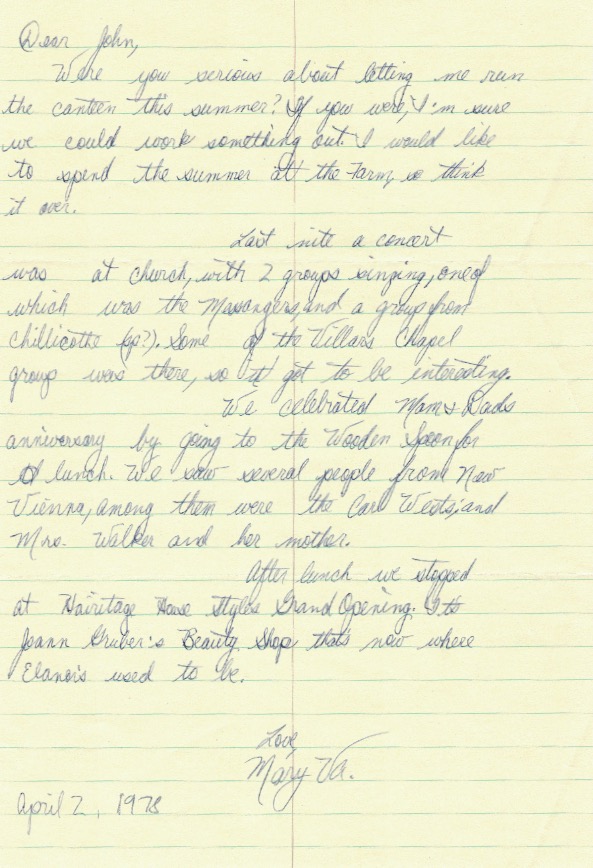 Dear John,
Were you serious about letting me run
the canteen this summer? If you were, I'm sure
we could work something out. I would like
to spend the summer at the Farm, so think
it over.
Last nite a concert
was at church, with 2 groups singing, one of
which was the Massangers, and a group from
Chillicothe (sp?). Some of the Villars Chapel
group was there, so it got to be interesting.
We celebrated Mam & Dads
anniversary by going to the Wooden Spoon for
lunch. We saw several people from New
Vienna, among them were the Carl Wests, and
Mrs. Walker and her mother.
After lunch we stopped
at Hairitage House Styles Grand Opening. Its
Joann Gruber's Beauty Shop thats now where
used to be.
Love,
Mary Va.
April 2, 1978